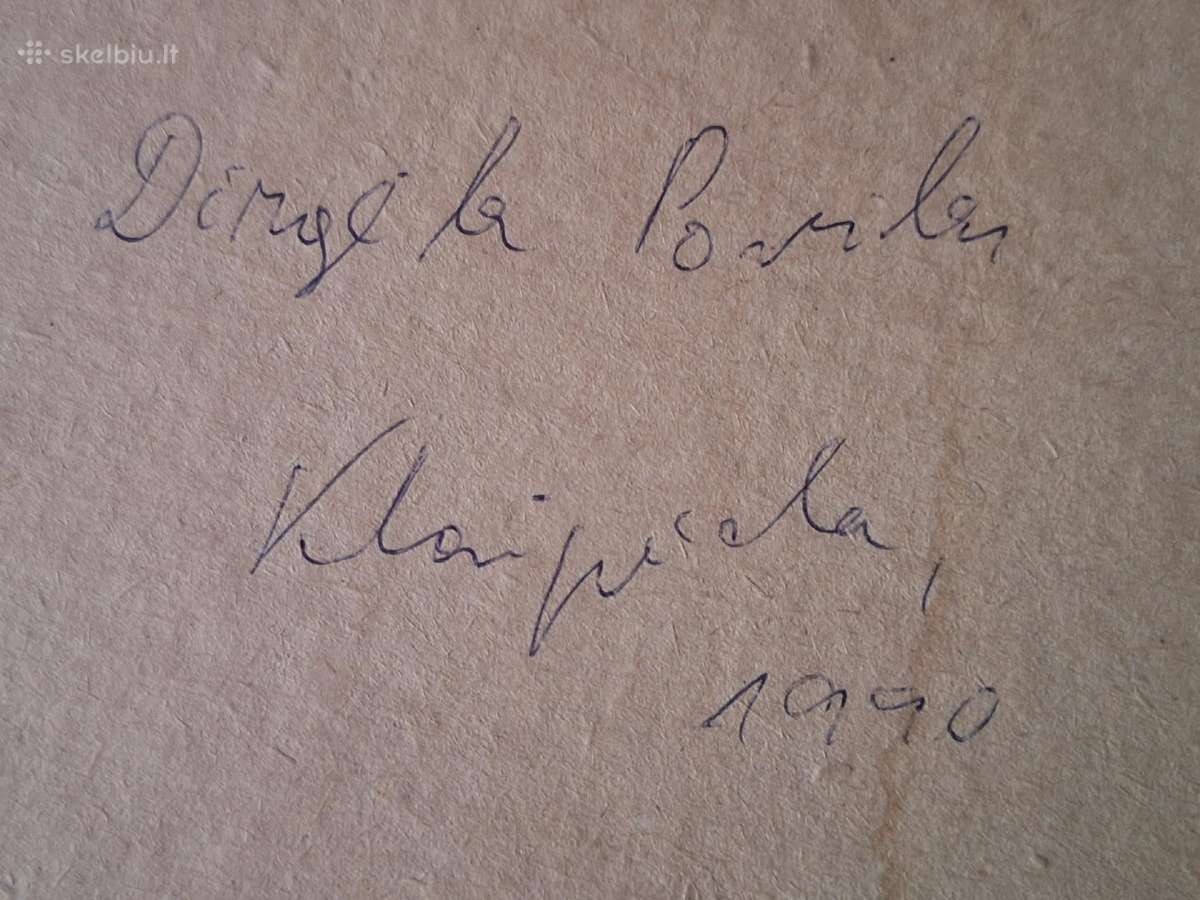 skelbiu.lt
Dirgėla Povilas
Klaipėda,
1990